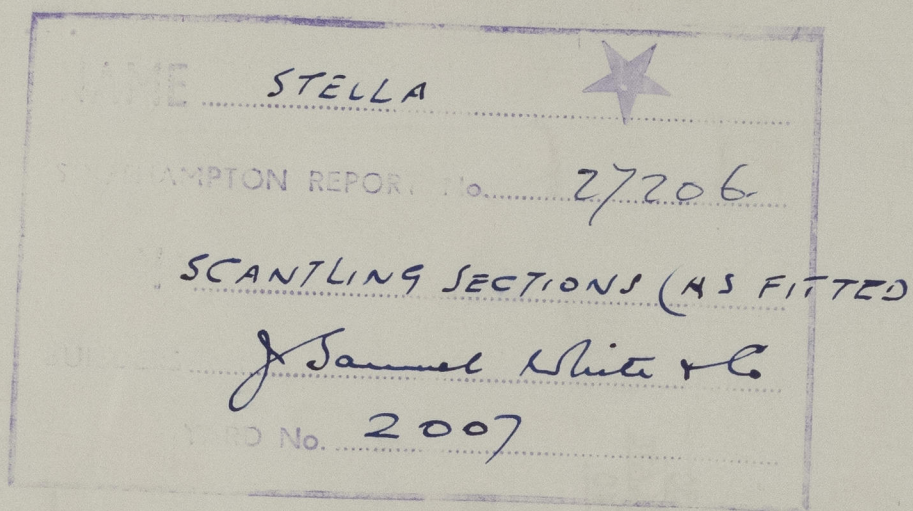 NAME STELLA
SOUTHAMPTON REPORT No. 27206
SCANTLING SECTIONS (AS FITTED
J Samuel White & Co
YARD No. 2007